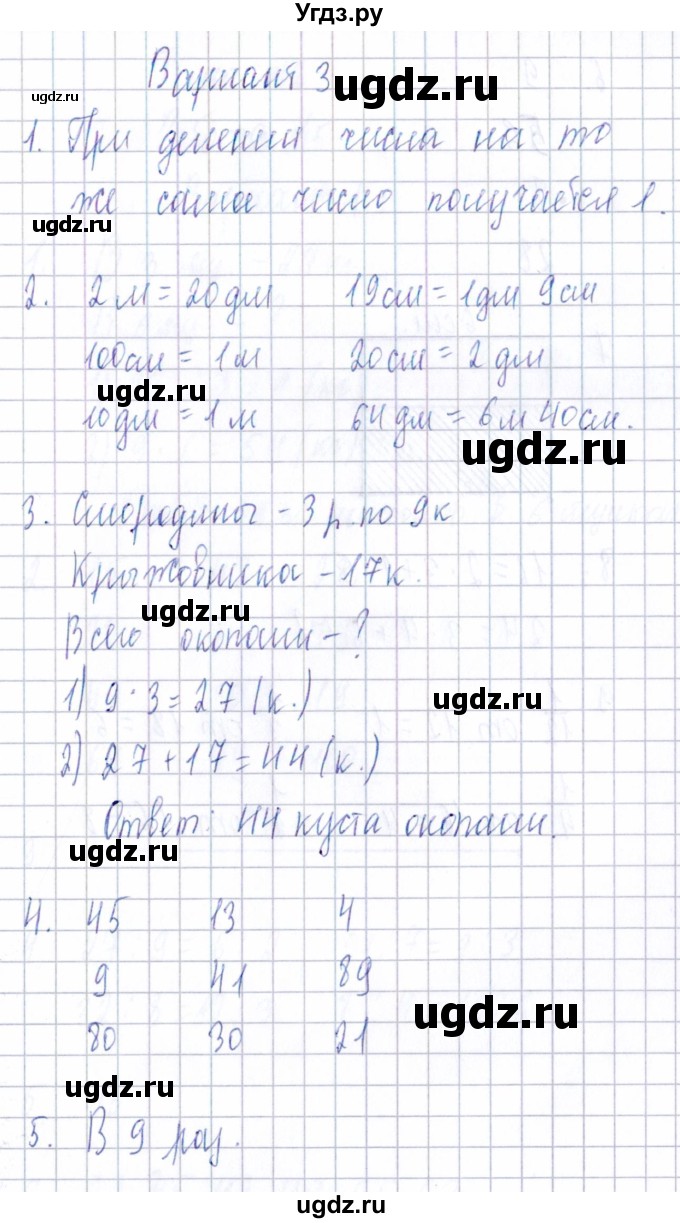 Угдз.ру
Вариант 3
ugdz.ru
ugdz.ru
1. При делении числа на то
же самое число получается 1.
ugdz.ru
2. 2м = 20дм 19см = 1дм 9см
100см = 1м 20см = 2дм
ugdz.ru
10дм = 1м 64дм = 6м 40см.
ugdz.ru
3. Смородины - 3 р. по 9к
Крыжовника - 17к.
ugdz.ru
Всего окопали - ?
1) 9·3=27 (к.)
ugdz.ru
2) 27+17=44 (к.)
Ответ: 44 куста окопали.
ugdz.ru
4. 45 13 4
9 41 89
ugdz.ru
80 30 21
ugdz.ru
5. В 9 раз.
ugdz.ru